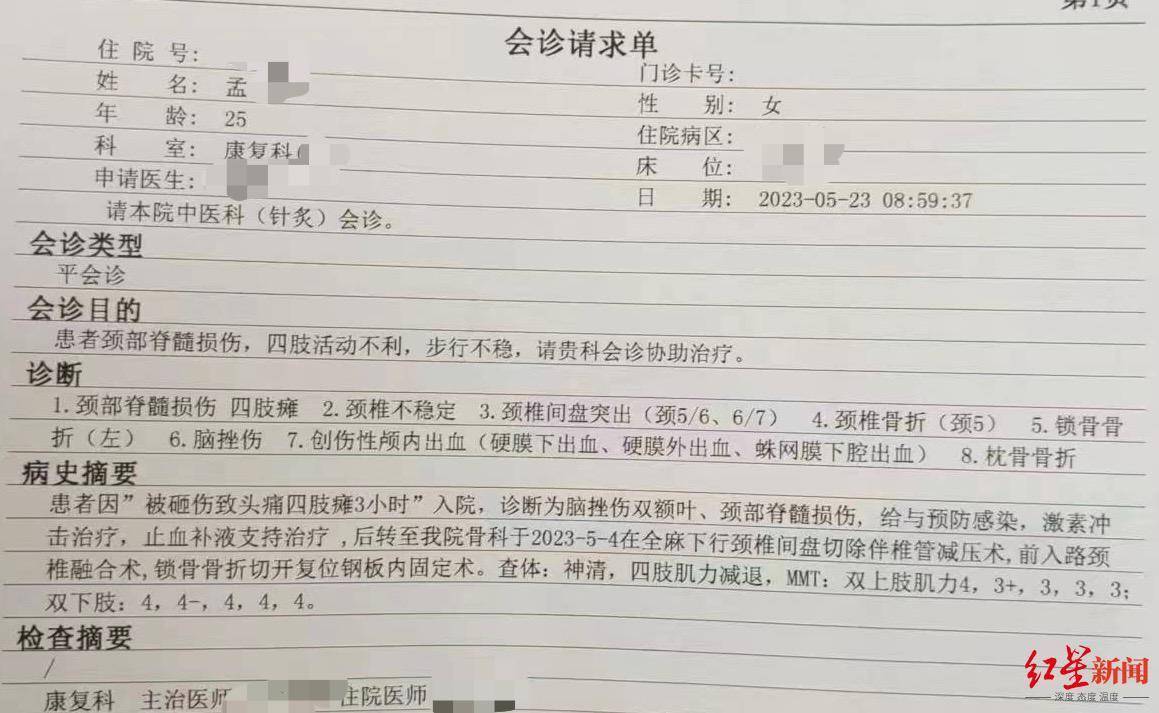 第1页
会诊请求单
住 院 号:
门诊卡号:
姓 名: 孟
性 别: 女
年 龄: 25
住院病区:
科 室: 康复科(
床 位:
申请医生:
日 期: 2023-05-23 08:59:37
请本院中医科（针炙）会诊。
会诊类型
平会诊
会诊目的
患者颈部脊髓损伤，四肢活动不利，步行不稳，请贵科会诊协助治疗。
诊断
1.颈部脊髓损伤 四肢瘫 2.颈椎不稳定 3.颈椎间盘突出（颈5/6、6/7） 4.颈椎骨折（颈5） 5.锁骨骨
折（左） 6.脑挫伤 7.创伤性颅内出血（硬膜下出血、硬膜外出血、蛛网膜下腔出血） 8.枕骨骨折
病史摘要
患者因”被砸伤致头痛四肢瘫3小时”入院，诊断为脑挫伤双额叶、颈部脊髓损伤, 给与预防感染，激素冲
击治疗，止血补液支持治疗 ,后转至我院骨科于2023-5-4在全麻下行颈椎间盘切除伴椎管减压术,前入路颈
椎融合术,锁骨骨折切开复位钢板内固定术。查体：神清，四肢肌力减退，MMT：双上肢肌力4，3+，3，3，3；
双下肢：4，4-，4，4，4。
检查摘要
/
康复科 主治医师 住院医师
红星新闻
深度 态度 温度